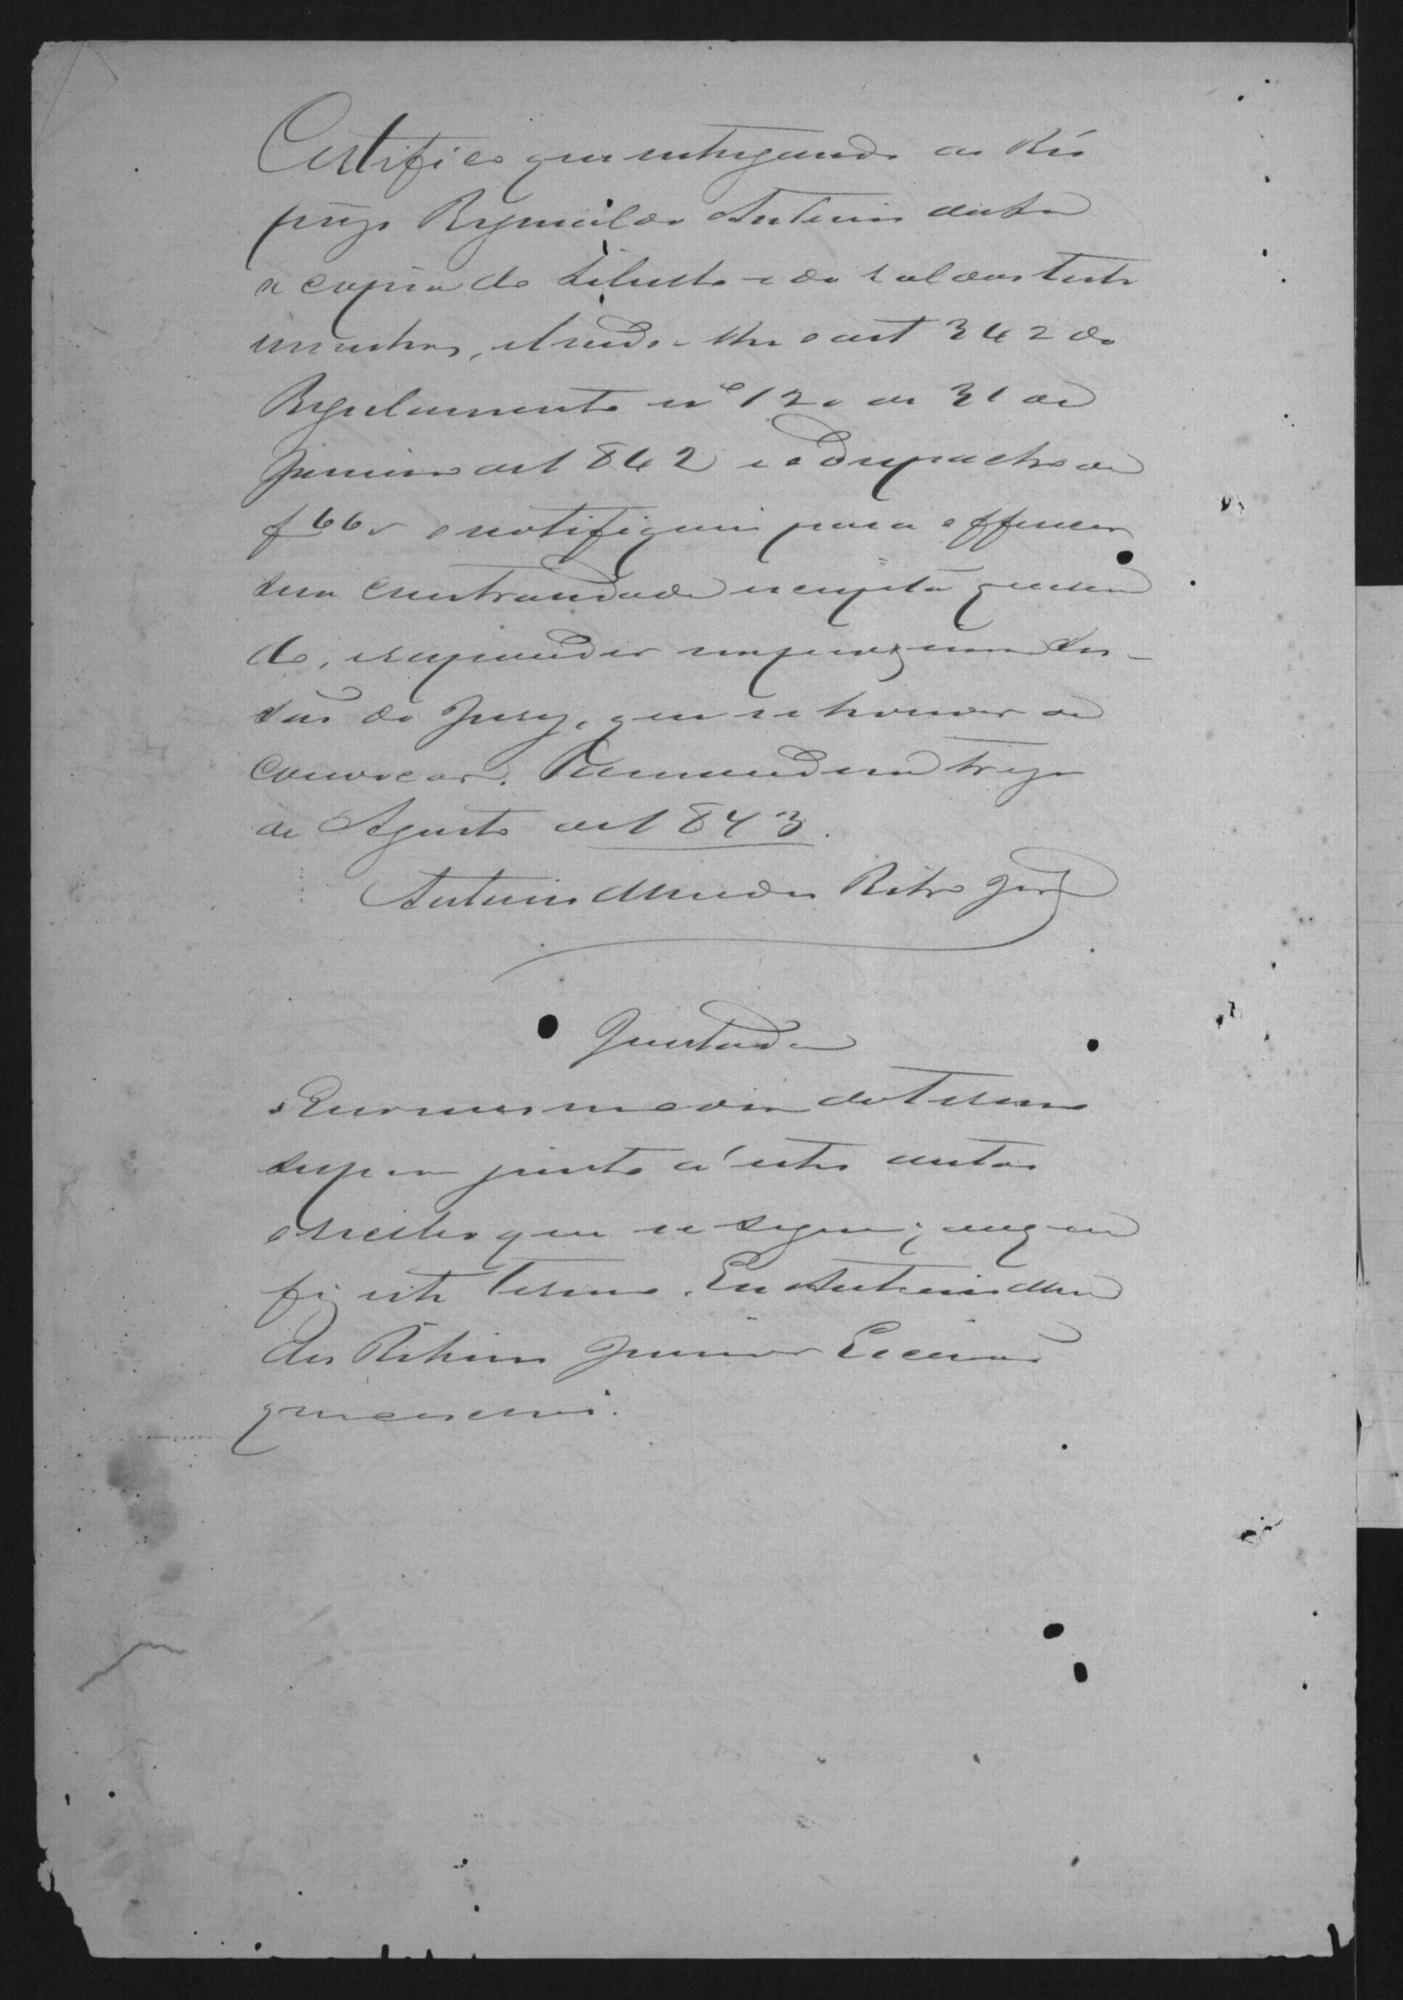 Certifico que entregando ao Réo
preso Reginaldo Antonio da
a copia do Libello e do rol das teste
munhas, lendo-lhe o art 342 do
Regulamento nº 120 de 31 de
Janeiro de 1842 e o despacho de
f 66v o notifiquei para offerecer
sua contrariedade escripta querendo
e responder na proxima ses-
são do Jury, que se houver de
convocar. treze
de Agosto de 1873.
Antonio Mendes Ribro Jor
Juntada
E no mesmo dia do termo
supra junto a estes autos
o recibo que se segue; do que
fiz este termo. Eu Antonio Men
des Ribeiro Junior Escrivão
que escrevi.